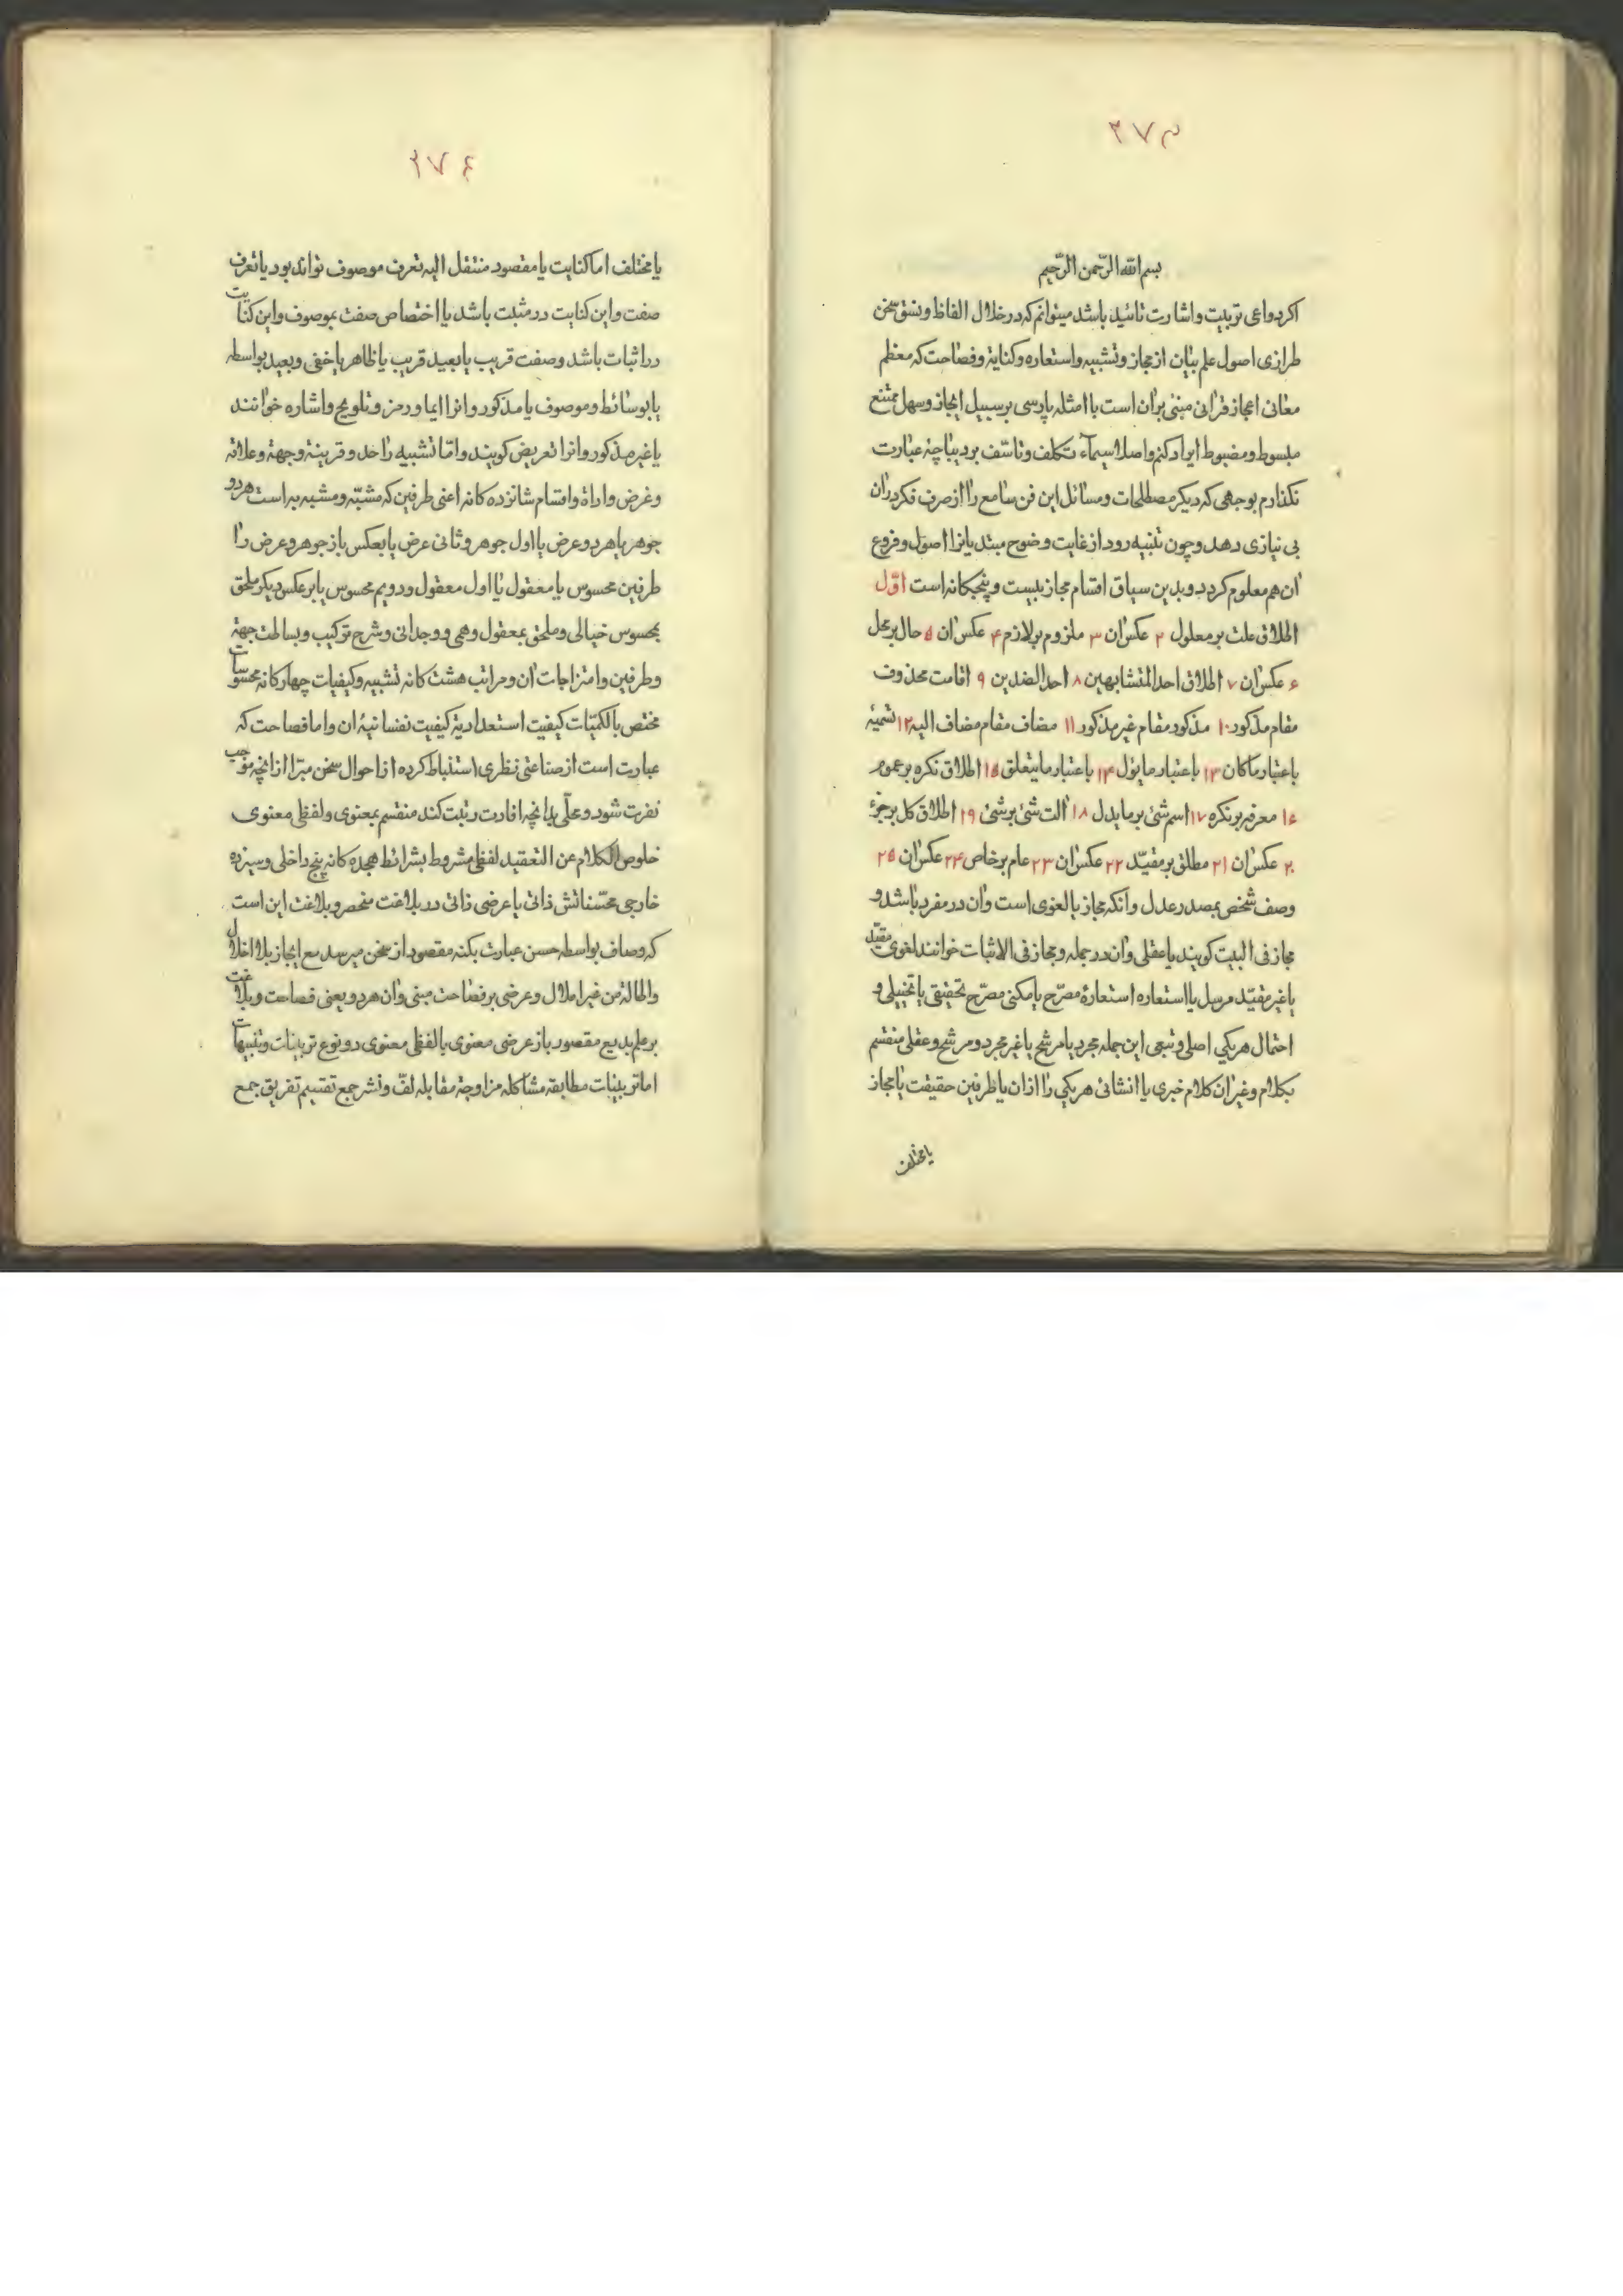 ۳۷۳
بسم الله الرّحمن الرّحیم
اکر دواعی تربیت واشارت تائید باشد میتوانم که در خلال الفاظ ونسق سخن
طرازی اصول علم بیان از مجاز وتشبیه واستعاره وکنایة وفصاحت که معظم
معانی اعجاز قرانی مبنی بران است با امثله پارسی بر سبیل ایجاز وسهل ممتنع
مبسوط ومضبوط ایراد کنم واصلا سیماء تکلف وتاسّف بر دیباچهٔ عبارت
نکذارم بوجهی که دیکر مصطلحات ومسائل این فن سامع را از صرف فکر دران
بی نیازی دهد وچون تنبیه رود از غایت وضوح مبتدیانرا اصول وفروع
ان هم معلوم کردد وبدین سیاق اقسام مجاز بیست وپنجکانه است اوّل
اطلاق علت بر معلول ۲ عکس ان ۳ ملزوم بر لازم ۴ عکس ان ۵ حال بر محل
۶ عکس ان ۷ اطلاق احد المتشابهین ۸ احد الضدین ۹ اقامت محذوف
مقام مذکور ۱۰ مذکور مقام غیر مذکور ۱۱ مضاف مقام مضاف الیه ۱۲ تسمیهٔ
باعتبار ماکان ۱۳ باعتبار مایؤل ۱۴ باعتبار مایتعلق ۱۵ اطلاق نکره بر عموم
۱۶ معرفه بر نکره ۱۷ اسم شئ بر مایدل ۱۸ الت شئ بر شئ ۱۹ اطلاق کل بر جزء
۲۰ عکس ان ۲۱ مطلق بر مقیّد ۲۲ عکس ان ۲۳ عام بر خاص ۲۴ عکس ان ۲۵
وصف شخص بمصدر عدل وانکه مجاز یا لغوی است وان در مفرد باشد و
مجاز فی البیت کویند یا عقلی وان در جمله ومجاز فی الاثبات خوانند لغوی مقیّد
یا غیر مقیّد مرسل یا استعاره استعارهٔ مصرّح یا مکنی مصرّح تحقیقی یا تخییلی و
احتمال هریکی اصلی وتبعی این جمله مجرد یا مرشح یا غیر مجرد ومرشح وعقلی منقسم
بکلام وغیر ان کلام خبری یا انشائی هریکی را ازان یا طرفین حقیقت یا مجاز
یا مختلف
۳۷۴
یا مختلف اما کنایت یا مقصود منتقل الیه تعرف موصوف تواند بود یا تعرف
صفت واین کنایت در مثبت باشد یا اختصاص صفت بموصوف واین کنایت
در اثبات باشد وصفت قریب یا بعید قریب یا ظاهر یا خفی وبعید بواسطه
یا بوسائط وموصوف یا مذکور وانرا ایما ورمز وتلویح واشاره خوانند
یا غیر مذکور وانرا تعریض کویند وامّا تشبیه را حد وقرینهٔ وجهة وعلاقه
وغرض واداة واقسام شانزده کانه اعنی طرفین که مشبّه ومشبه به است هر دو
جوهر یا هر دو عرض یا اول جوهر وثانی عرض یا بعکس باز جوهر وعرض را
طرفین محسوس یا معقول یا اول معقول ودویم محسوس یا بر عکس دیکر ملحق
بمحسوس خیالی وملحق بمعقول وهمی ووجدانی وشرح ترکیب وبساطت جهة
وطرفین وامتزاجات ان ومراتب هشت کانه تشبیه وکیفیات چهارکانه محسوسات
مختص بالکمیّات کیفیت استعدادیة کیفیت نفسانیهٔ ان واما فصاحت که
عبارت است از صناعتی نظری استنباط کرده از احوال سخن مبرّا از انچه موجب
نفرت شود ومحلّی بدانچه افادت رتبت کند منقسم بمعنوی ولفظی معنوی
خلوص الکلام عن التعقید لفظی مشروط بشرائط هجده کانه پنج داخلی وسیزده
خارجی محسّناتش ذاتی یا عرضی ذاتی در بلاغت منحصر وبلاغت این است
که وصاف بواسطه حسن عبارت بکنه مقصود از سخن میرسد مع ایجاز بلا اخلال
واطالة من غیر املال وعرضی بر فصاحت مبنی وان هر دو یعنی فصاحت وبلاغت
بر علم بدیع مقصور باز عرضی معنوی یا لفظی معنوی دو نوع تزیینات وتنبیهات
اما تزیینات مطابقه مشاکله مزاوجة مقابله لفّ ونشر جمع تقسیم تفریق جمع